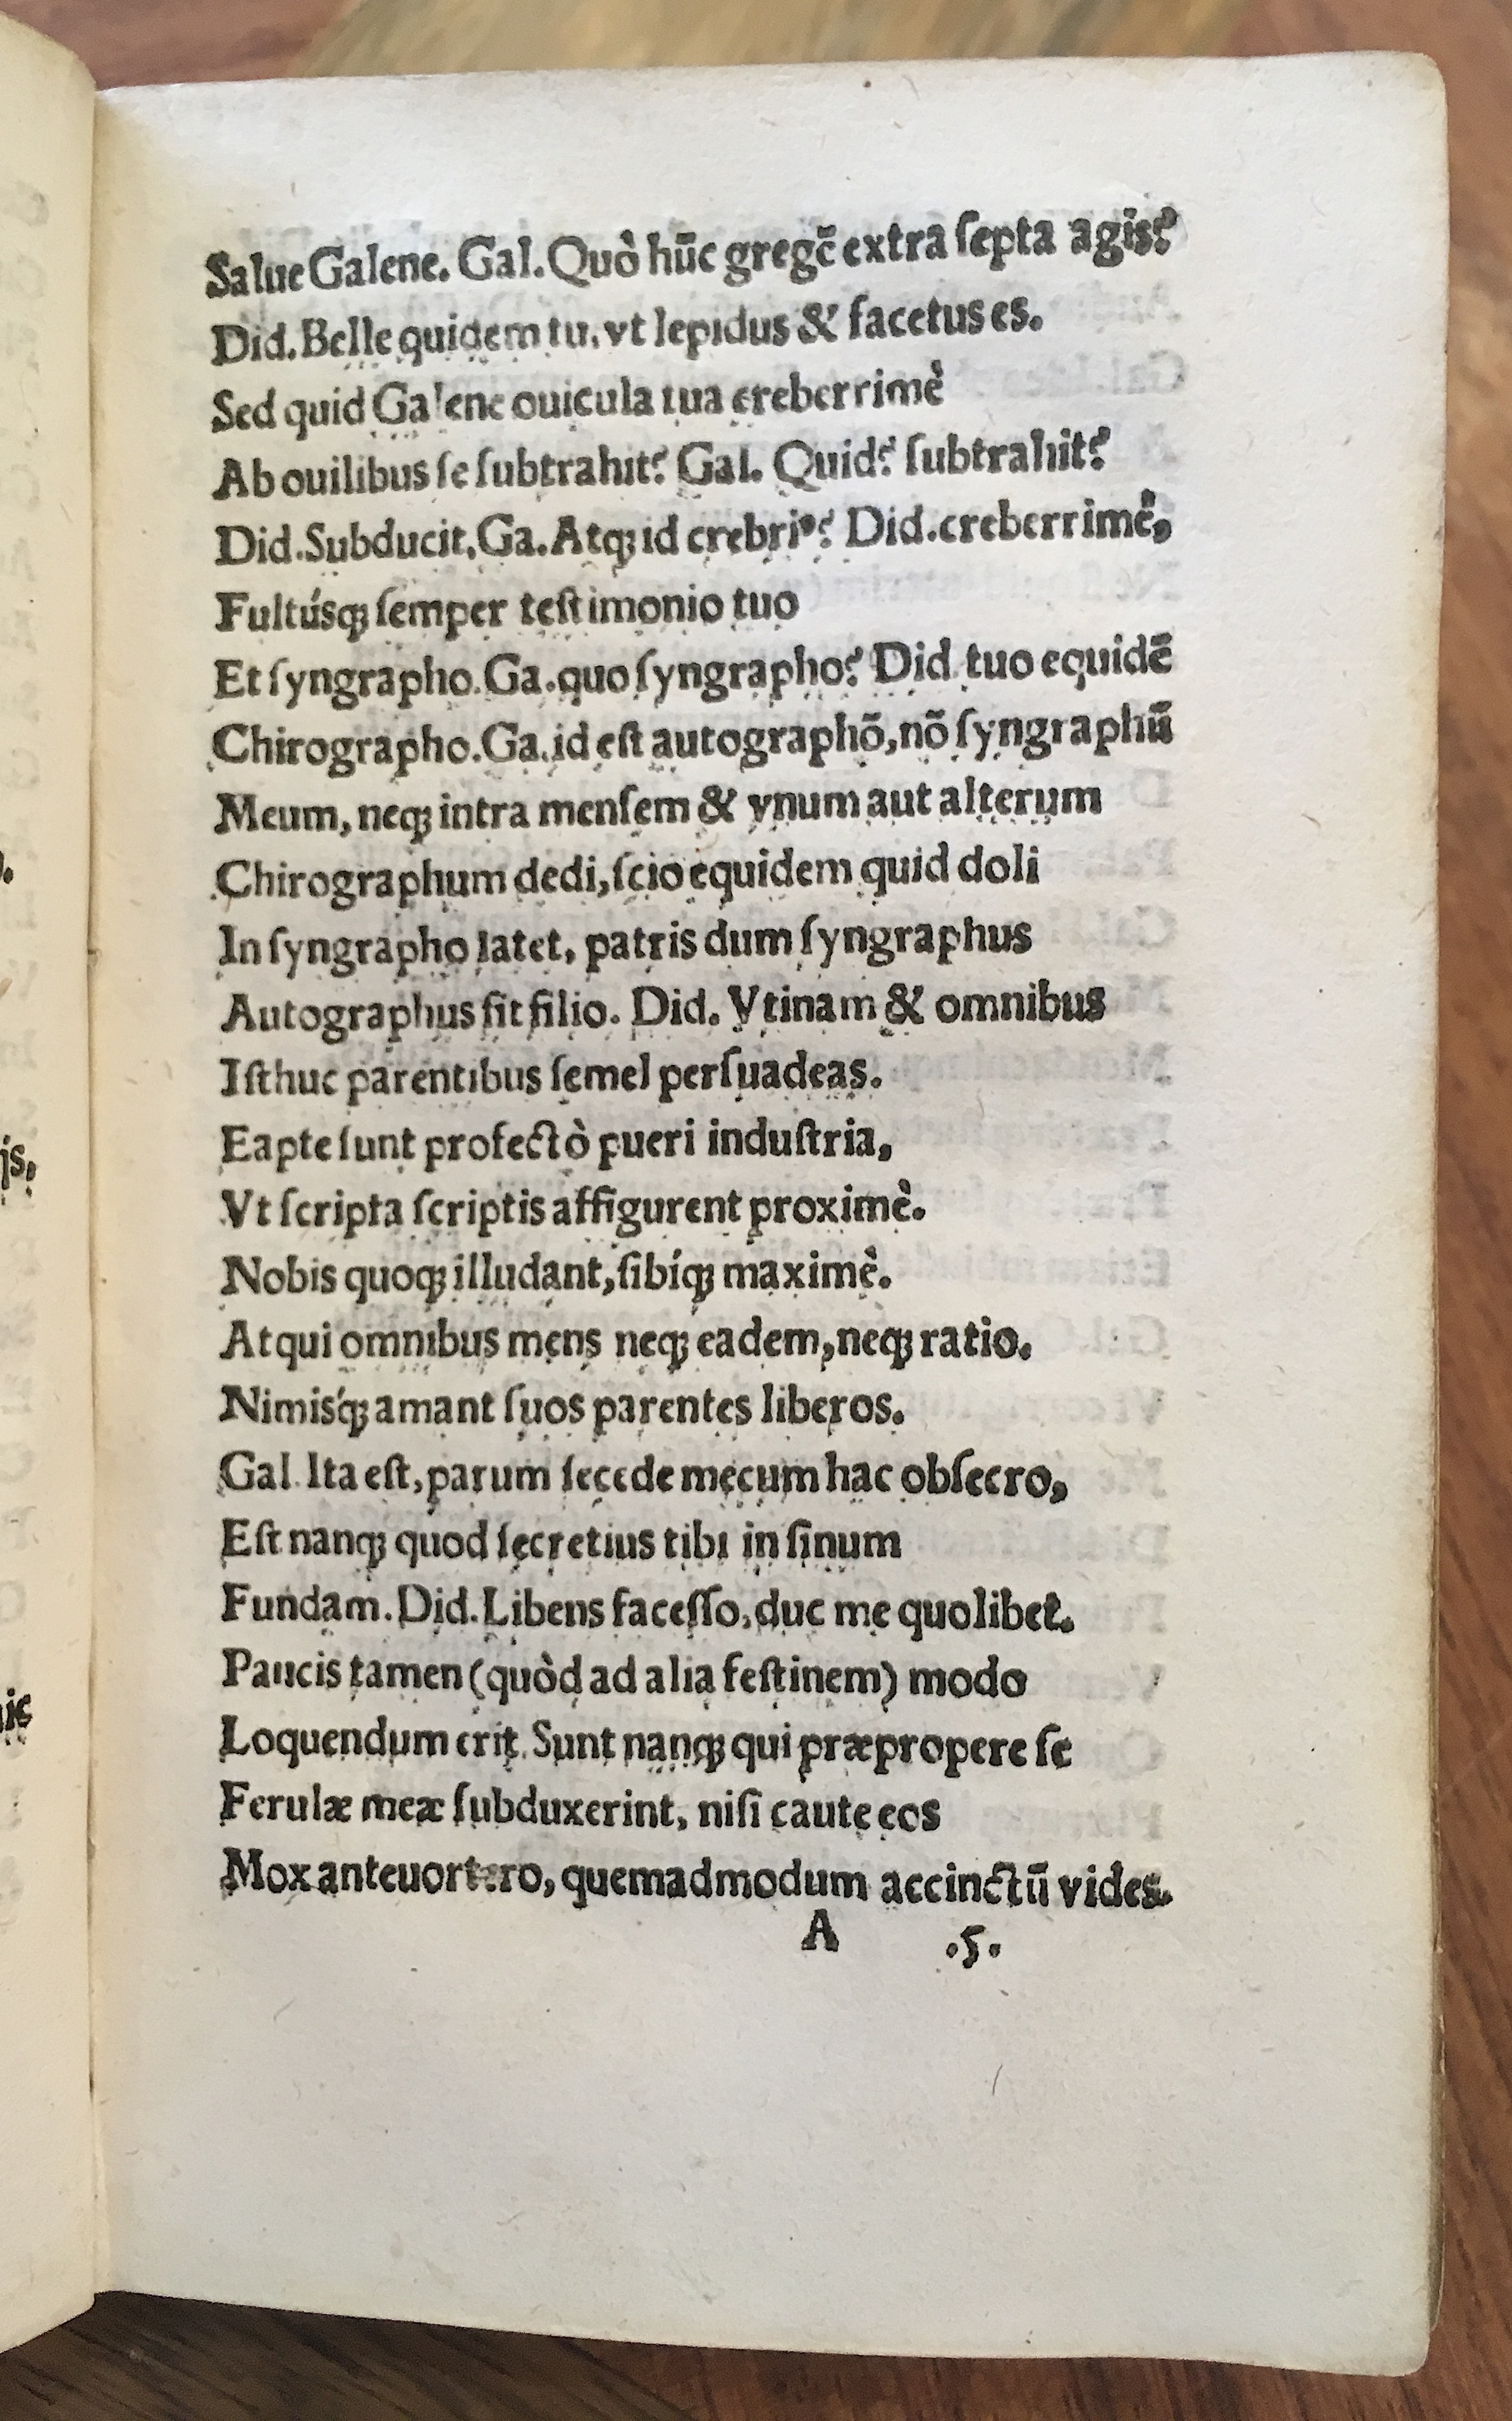 Salue Galene. Gal. Quò hūc gregē extra ſepta agis?
Did. Belle quidem tu, vt lepidus & facetus es.
Sed quid Galene ouicula tua creberrimè
Ab ouilibus ſe ſubtrahit? Gal. Quid? ſubtrahit?
Did. Subducit, Ga. Atqꝫ id crebriꝰ? Did. creberrimè,
Fultúsqꝫ ſemper teſtimonio tuo
Et ſyngrapho. Ga. quo ſyngrapho? Did. tuo equidē
Chirographo. Ga. id eſt autographõ, nõ ſyngraphū
Meum, neqꝫ intra menſem & vnum aut alterum
Chirographum dedi, ſcio equidem quid doli
In ſyngrapho latet, patris dum ſyngraphus
Autographus fit filio. Did. Vtinam & omnibus
Iſthuc parentibus ſemel perſuadeas.
Eapte ſunt profectò pueri induſtria,
Vt ſcripta ſcriptis affigurent proximè.
Nobis quoqꝫ illudant, ſibíqꝫ maximè.
Atqui omnibus mens neqꝫ eadem, neqꝫ ratio.
Nimisq́ꝫ amant ſuos parentes liberos.
Gal. Ita eſt, parum ſecede mecum hac obſecro,
Eſt nanqꝫ quod ſecretius tibi in ſinum
Fundam. Did. Libens faceſſo, duc me quolibet.
Paucis tamen (quòd ad alia feſtinem) modo
Loquendum erit. Sunt nanqꝫ qui præpropere ſe
Ferulæ meæ ſubduxerint, niſi caute eos
Mox anteuortero, quemadmodum accinctū vides.
A .5.
is,